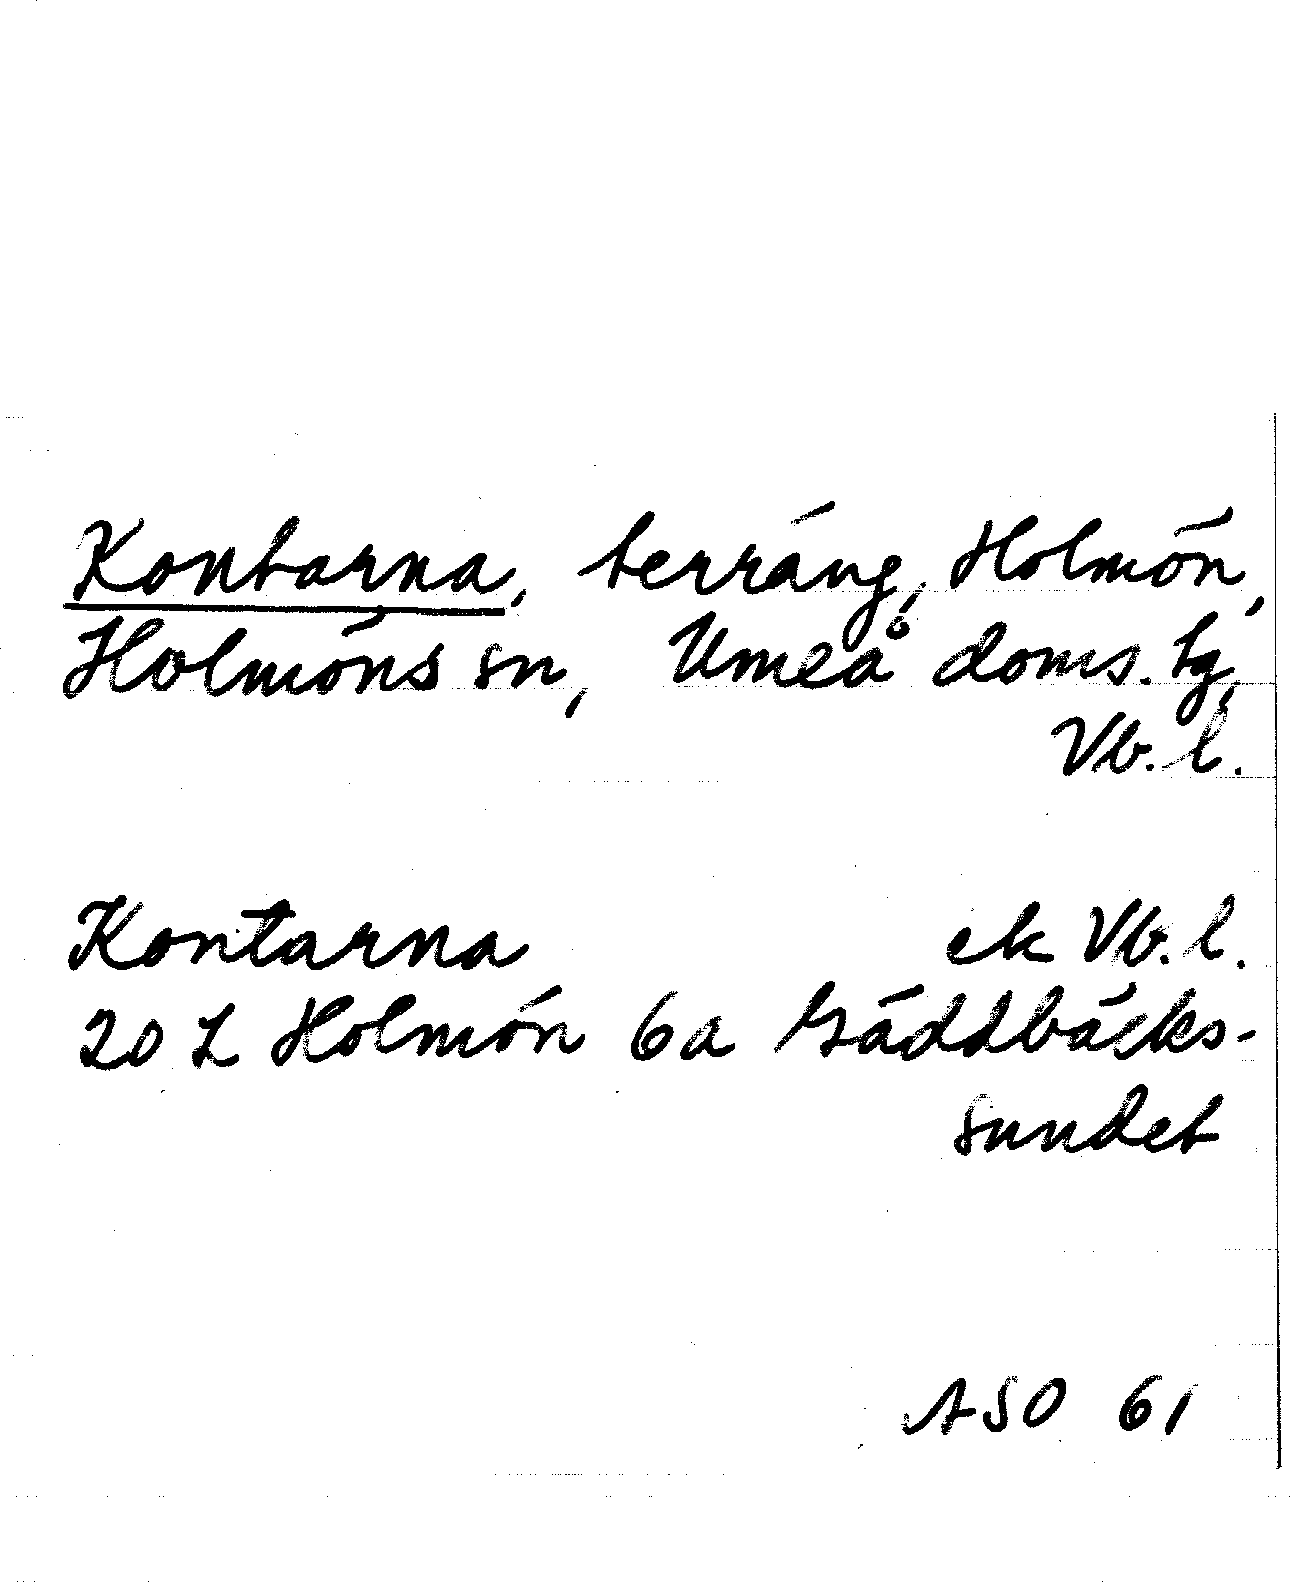 Kontarna, terräng, Holmön,
Holmöns sn, Umeå doms. tg,
Vb. l.
Kontarna ek Vb. l.
20 L Holmön 6a Gäddbäcks-
sundet
ASO 61